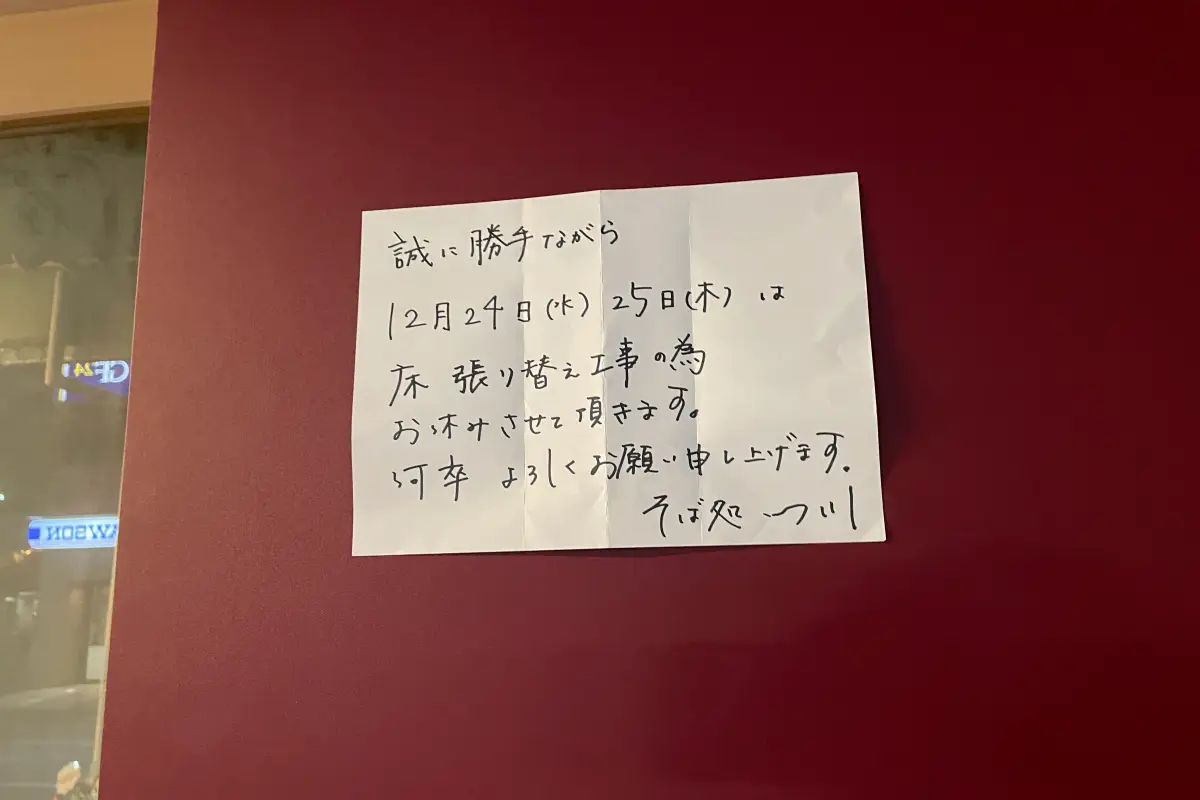 誠に勝手ながら
12月24日(水) 25日(木) は
床 張り替え工事の為
お休みさせて頂きます。
何卒 よろしくお願い申し上げます。
そば処 つ川
GF24
LAWSON